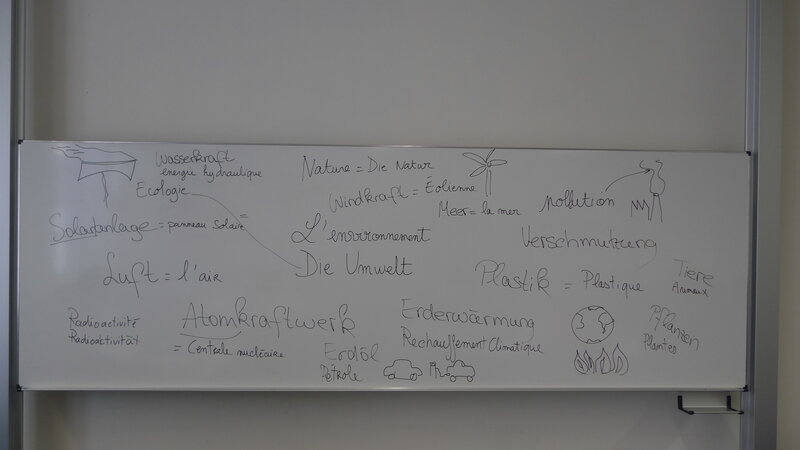 Wasserkraft
énergie hydraulique
Ecologie
Nature = Die Natur
Windkraft = Éolienne
Meer = la mer
Pollution
Solaranlage = panneau solaire =
L'environnement
Verschmutzung
Luft = l'air
Die Umwelt
Plastik = Plastique
Tiere
Animaux
Radioactivité
Radioaktivität
Atomkraftwerk
= Centrale nucléaire
Erderwärmung
Rechauffement Climatique
Erdöl
Pétrole
Pflanzen
Plantes